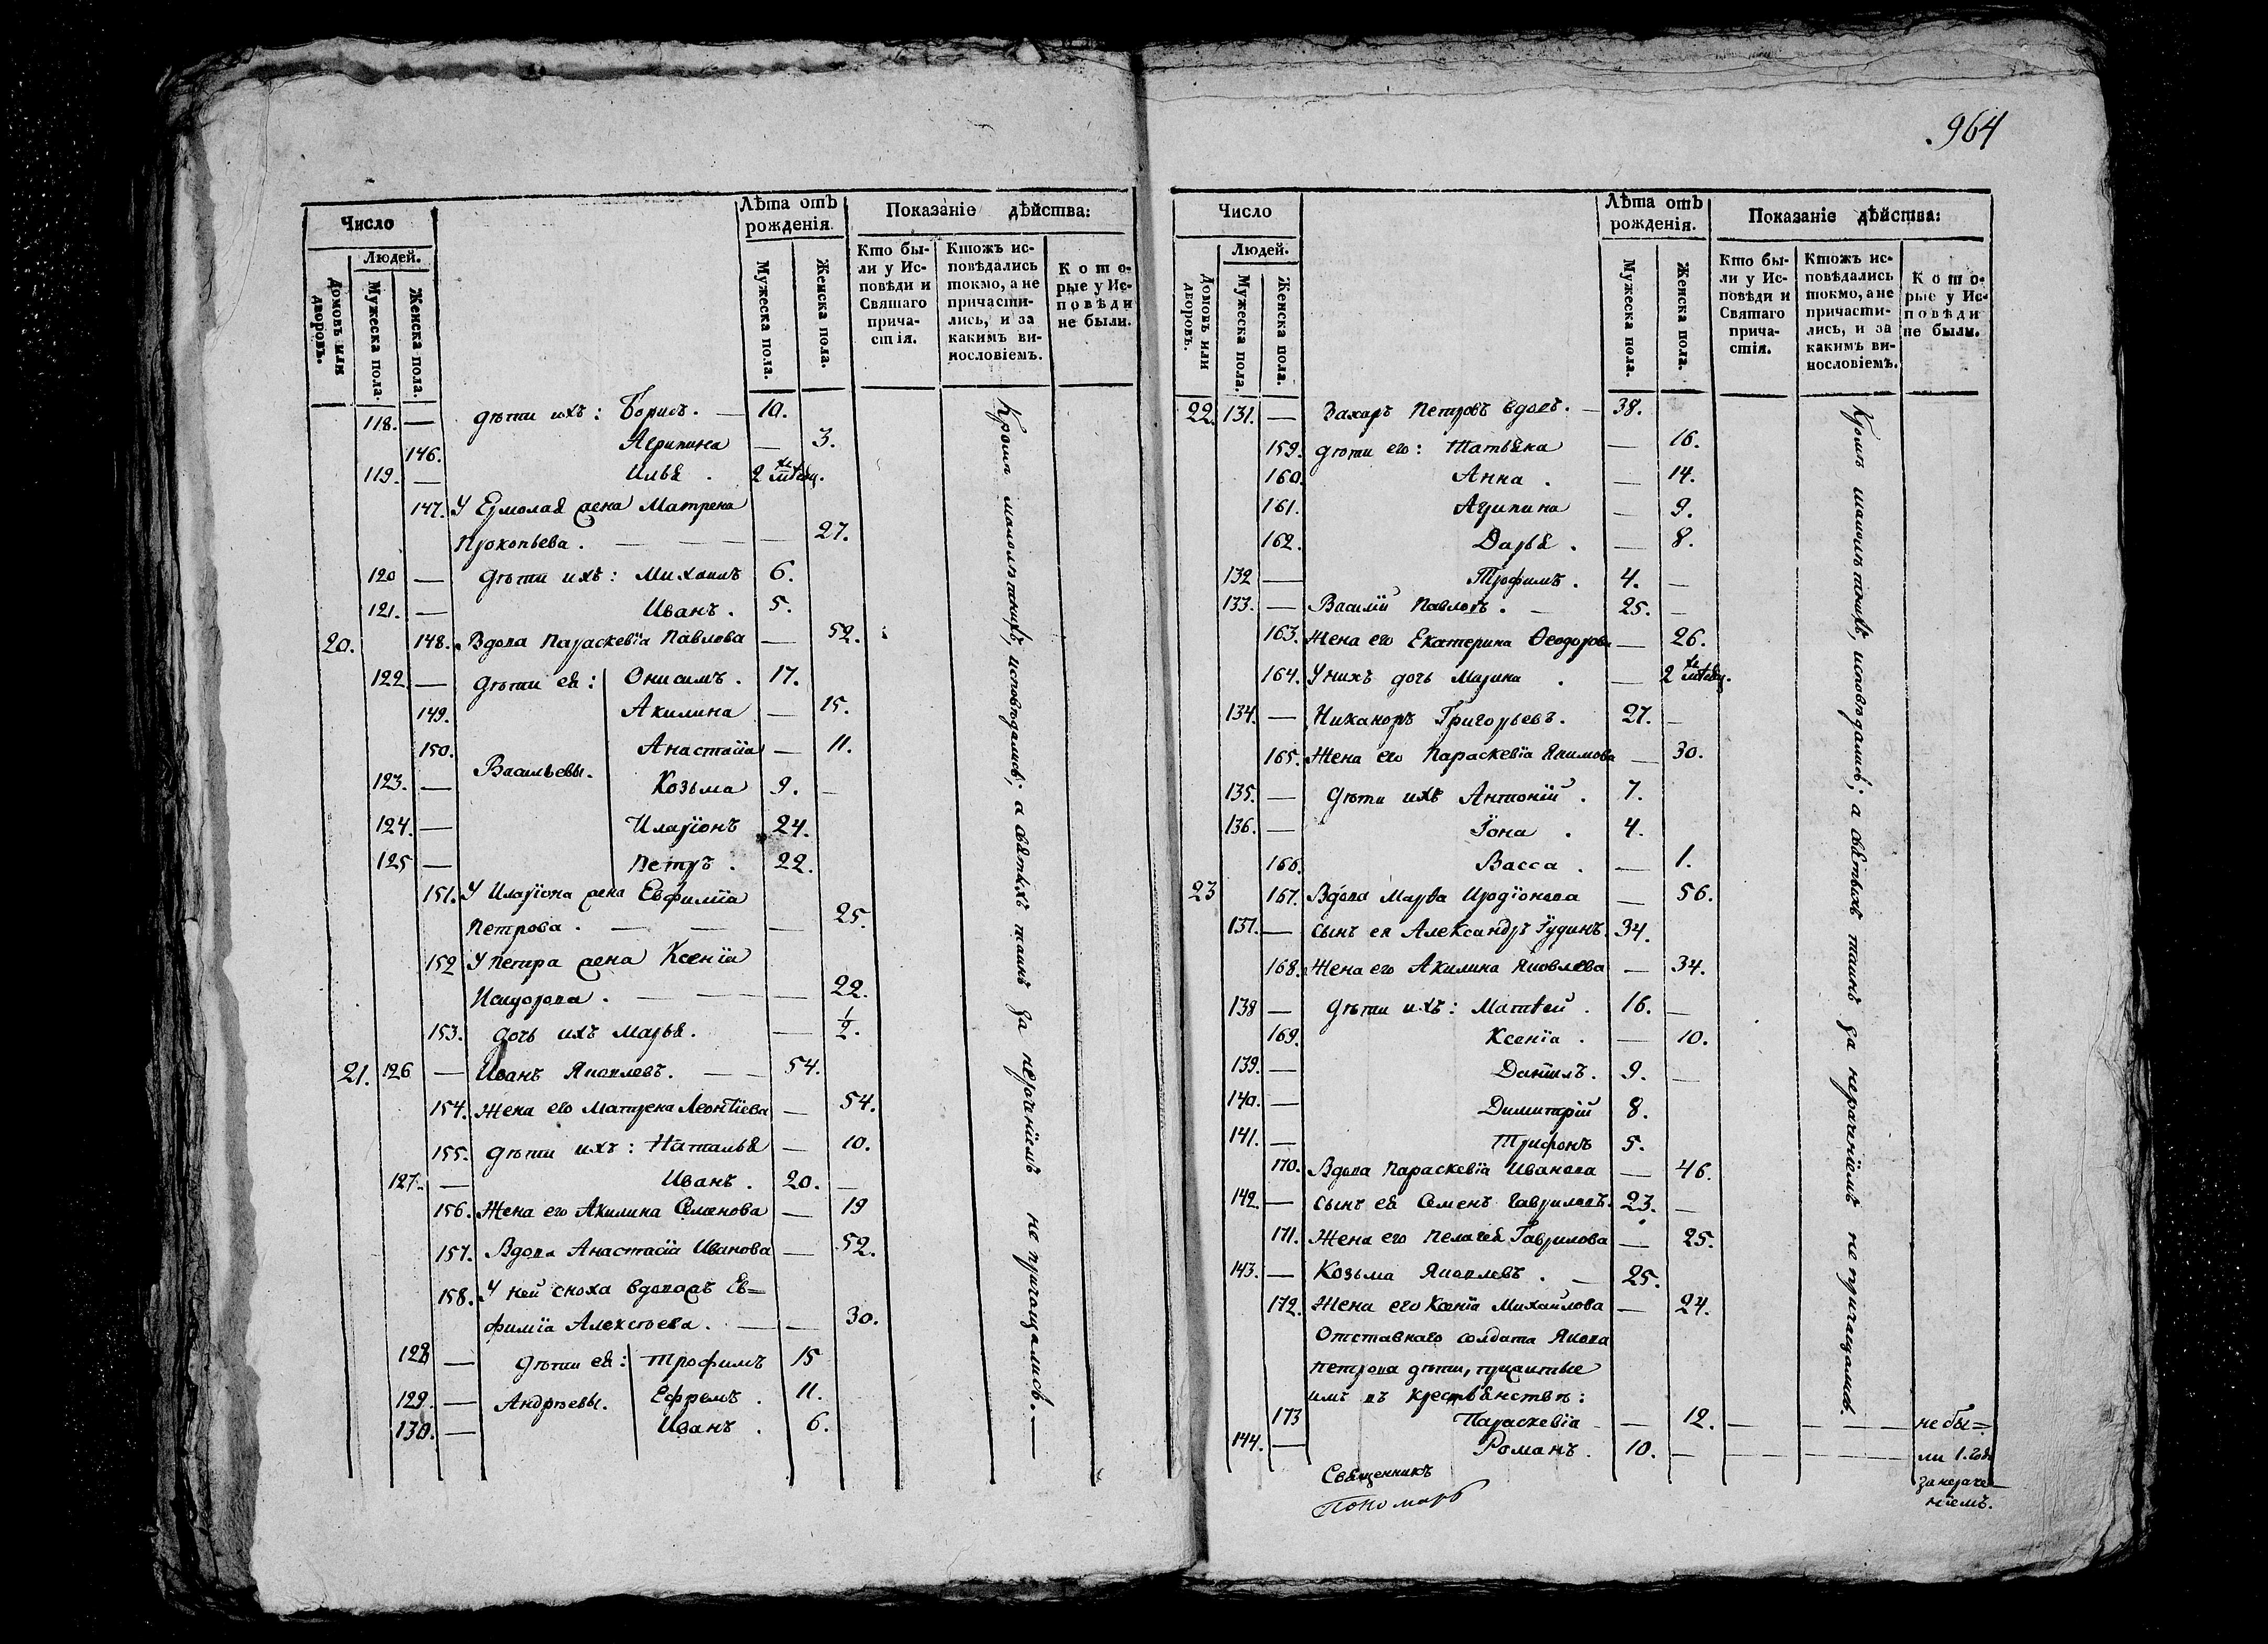 964
Число
Лѣта отъ рожденія.
Показаніе дѣйства:
Людей.
Домовъ или дворовъ.
Мужеска пола.
Женска пола.
Мужеска пола.
Женска пола.
Кто бы-
ли у Ис-
повѣди и
Святаго
прича-
стія.
Ктожъ ис-
повѣдались
токмо, а не
причасти-
лись, и за
какимъ ви-
нословіемъ.
Кото-
рые у Ис-
повѣди
не были.
118. — дѣти ихъ: Борисъ. — 10.
146. Агрипина — 3.
119. — Илья . 2 мѣсяц.
147. У Ермолая жена Матрена
Прокопьева. — — — — 27.
120 — дѣти ихъ: Михаилъ 6.
121. — Иванъ. 5.
20. 148. Вдова Параскевіа Павлова — 52.
122. — дѣти ея: Онисимъ. 17.
149. Акилина — 15.
150. Анастасіа — 11.
Васильевы.
123. — Козьма 9. —
124. — Иларіонъ 24.
125 — Петръ. 22.
151. У Иларіона жена Евфиміа
Петрова. — — — 25.
152 У Петра жена Ксеніа
Исидорова. — — — — 22.
153. дочь ихъ Марья. — ½.
21. 126 — Иванъ Яковлевъ. — — 54.
154. Жена его Матрена Леонтіева — 54.
155. дѣти ихъ: Наталья — 10.
127. — Иванъ. 20. —
156. Жена его Акилина Семенова — 19
157. Вдова Анастасіа Иванова — 52.
158. У ней сноха вдова жъ Ев=
фиміа Алексѣева. — — 30.
128 — дѣти ея: Трофимъ 15
129. — Андрѣевы. Ефремъ. 11.
130. — Иванъ. 6.
Кромѣ малолѣтнихъ, исповѣдались; а святыхъ таинъ за нераченіемъ не причащались. —
Число
Лѣта отъ рожденія.
Показаніе дѣйства:
Людей.
Домовъ или дворовъ.
Мужеска пола.
Женска пола.
Мужеска пола.
Женска пола.
Кто бы-
ли у Ис-
повѣди и
Святаго
прича-
стія.
Ктожъ ис-
повѣдались
токмо, а не
причасти-
лись, и за
какимъ ви-
нословіемъ.
Кото-
рые у Ис-
повѣди
не были.
22. 131. — Захаръ Петровъ вдовъ. — 38.
159. дѣти его: Татьяна — 16.
160. Анна . — 14.
161. Агрипина — 9.
162. Дарья . — 8.
132 — Трофимъ. 4. —
133. — Василій Павловъ. — 25. —
163. Жена его Екатерина Ѳеодорова — 26.
164. У нихъ дочь Марина . — 2 мѣсяц.
134. — Никаноръ Григорьевъ. 27. —
165. Жена его Параскевіа Якимова — 30.
135. — дѣти ихъ Антоній . 7.
136. — Іона . 4.
166. Васса . — 1.
23 167. Вдова Марѳа Иродіонова — 56.
137. — сынъ ея Александръ Іудинъ. 34.
168. Жена его Акилина Яковлева — 34.
138 — дѣти ихъ: Матѳей . 16. —
169. Ксеніа . — 10.
139. — Даніилъ. 9. —
140. — Димитрій 8.
141. — Трифонъ 5.
170. Вдова Параскевіа Иванова — 46.
142. — сынъ ея Семенъ Гавриловъ. 23. —
171. Жена его Пелагея Гаврилова — 25.
143. — Козьма Яковлевъ. — 25.
172. Жена его Ксеніа Михайлова — 24.
Отставнаго солдата Якова
Петрова дѣти, прижитые
имъ въ крестьянствѣ:
173 Параскевіа — 12. — — — не бы=
144. — Романъ. 10. — — — — ли 1. годъ
за нераче-
ніемъ.
Кромѣ малолѣтнихъ, исповѣдались; а святыхъ таинъ за нераченіемъ не причащались.
Священникъ
Пономарь